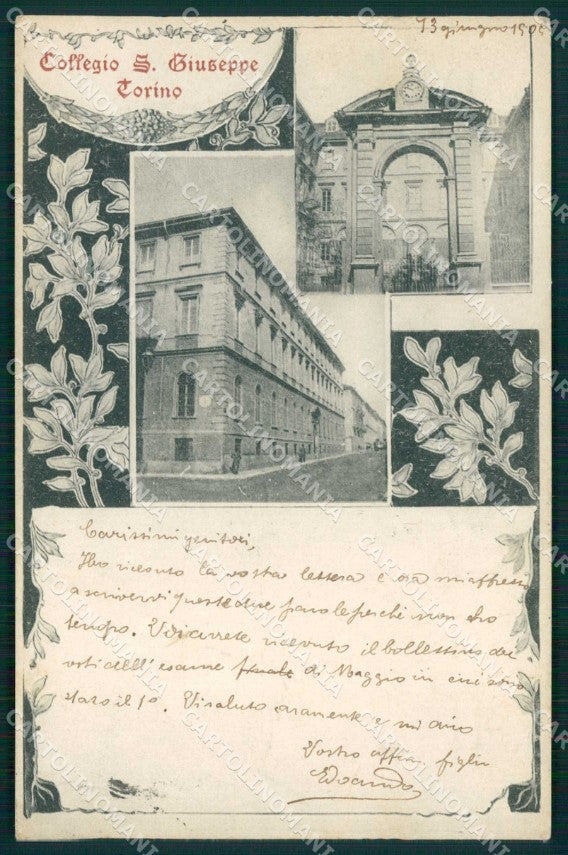 13 giugno 190
Collegio S. Giuseppe
Torino
Carissimi genitori,
Ho ricevuto la vostra lettera e ora mi affretto
a scrivervi queste due parole perchè non ho
tempo. Voi avrete ricevuto il bollettino dei
voti dell'esame finale di Maggio in cui sono
stato il 1o. Vi saluto caramente e mi dico
Vostro aff.mo figlio
Edoardo
CARTOLINOMANIA